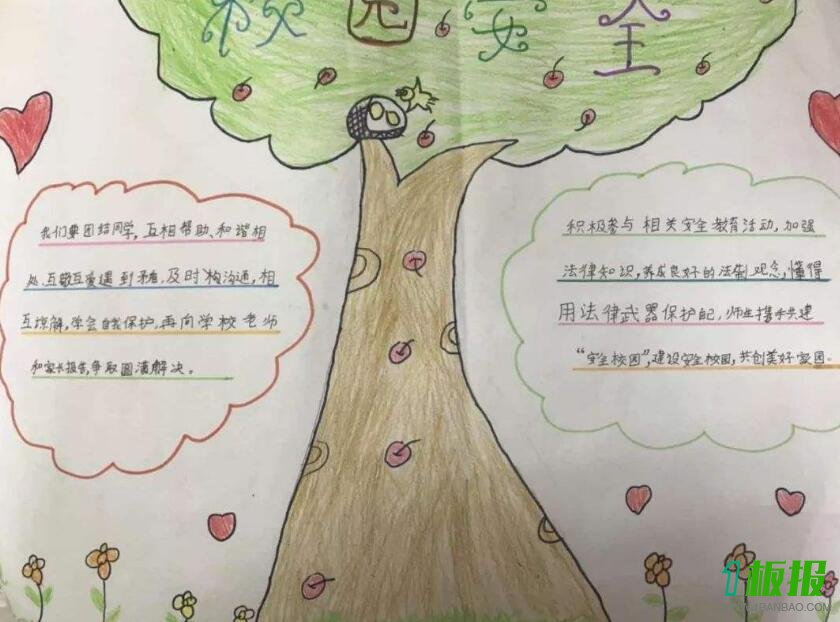 校园安全
我们要团结同学,互相帮助、和谐相
处,互敬互爱遇到矛盾,及时沟通,相
互谅解,学会自我保护,再向学校老师
和家长报告,争取圆满解决。
积极参与相关安全教育活动,加强
法律知识,养成良好的法制观念,懂得
用法律武器保护自己,师生携手共建
“安全校园”,建设安全校园,共创美好家园。
板报